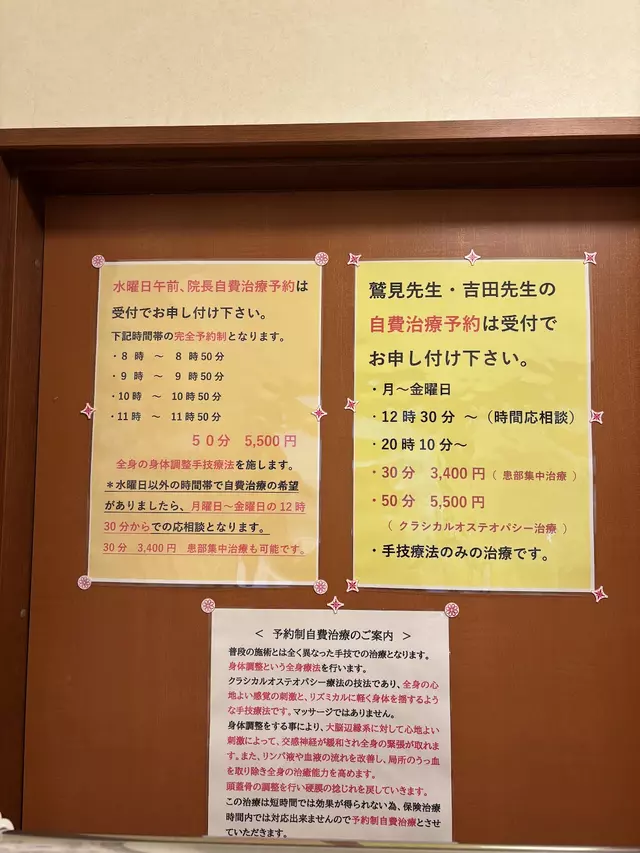 水曜日午前、院長自費治療予約は
受付でお申し付け下さい。
下記時間帯の完全予約制となります。
・8 時 ～ 8 時 50 分
・9 時 ～ 9 時 50 分
・10 時 ～ 10 時 50 分
・11 時 ～ 11 時 50 分
50分 5,500 円
全身の身体調整手技療法を施します。
＊水曜日以外の時間帯で自費治療の希望
がありましたら、月曜日～金曜日の 12 時
30 分からでの応相談となります。
30 分 3,400 円 患部集中治療も可能です。
鷲見先生・吉田先生の
自費治療予約は受付で
お申し付け下さい。
・月～金曜日
・12 時 30 分 ～（時間応相談）
・20 時 10 分～
・30 分 3,400 円（ 患部集中治療 ）
・50 分 5,500 円
（ クラシカルオステオパシー治療 ）
・手技療法のみの治療です。
＜ 予約制自費治療のご案内 ＞
普段の施術とは全く異なった手技での治療となります。
身体調整という全身療法を行います。
クラシカルオステオパシー療法の技法であり、全身の心
地よい感覚の刺激と、リズミカルに軽く身体を揺するよう
な手技療法です。マッサージではありません。
身体調整をする事により、大脳辺縁系に対して心地よい
刺激によって、交感神経が緩和され全身の緊張が取れま
す。また、リンパ液や血液の流れを改善し、局所のうっ血
を取り除き全身の治癒能力を高めます。
頭蓋骨の調整を行い硬膜の捻じれを戻していきます。
この治療は短時間では効果が得られない為、保険治療
時間内では対応出来ませんので予約制自費治療とさせ
ていただきます。